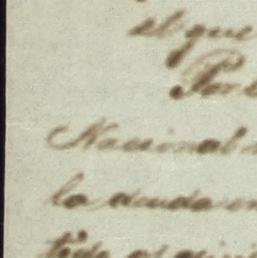 el que
Por
Nacional
la deuda en